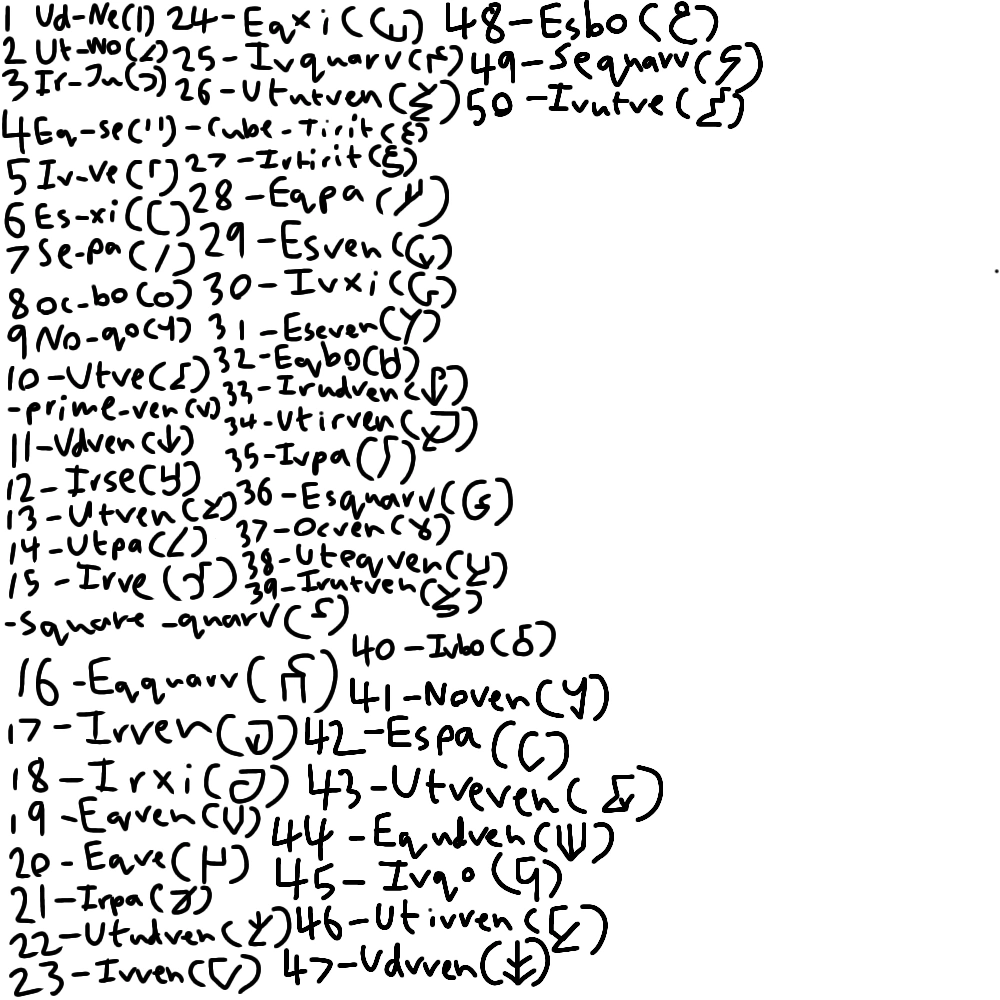 1 Ud-Ne(l)
2 Ut-No(∠)
3 Ir-In(ↄ)
4 Eq-se(11)
5 Iv-ve(Γ)
6 Es-xi([)
7 Se-pa(/)
8 oc-bo(o)
9 No-qo(Ч)
10-Utve(Σ)
-prime-ven(v)
11-Udven(↓)
12-Irse(Y)
13-Utven()
14-Utpa(∠)
15-Irve()
-Square-quarv()
16-Eqquarv()
17-Irven()
18-Irxi()
19-Eqven(V)
20-Eqve()
21-Irpa()
22-Utudven()
23-Ivven()
24-Eqxi()
25-Ivquarv()
26-Ututven()
-Cube-Tirit(ξ)
27-Irtirit(ξ)
28-Eqpa()
29-Esven()
30-Ivxi()
31-Eseven(Y)
32-Eqbo()
33-Irudven()
34-Utirven()
35-Ivpa(ʃ)
36-Esquarv(G)
37-Ocven(ɣ)
38-Uteqven()
39-Irutven()
40-Ivbo(δ)
41-Noven(y)
42-Espa(C)
43-Utveven()
44-Equdven(ψ)
45-Ivqo()
46-Utivven()
47-Udvven()
48-Esbo()
49-Sequarv()
50-Ivutve(Σ)